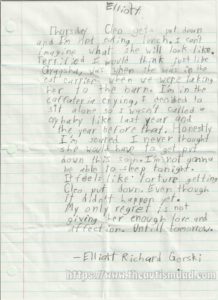 Elliott
Thursday Cleo gets put down
and I'm not eding lunch. I can't
imagine what she will look like.
Terrified I would think just like
was when she was in the
cat carrier when we were taking
her to the barn. I'm in the
cafeteria crying, I decided to
sit alone so I wasn't called a
crybaby like last year and
the year before that. Honestly
I'm scared I never thought
she would have to get put
down this soon. I'm not gonna
be able to sleep tonight.
It feels like torture getting
Cleo put down. Even though
it didn't happen yet.
My only regret is not
giving her enough love and
affection. Untill tomorrow.
-Elliott Richard Gorski
https://www.theautismdad.com